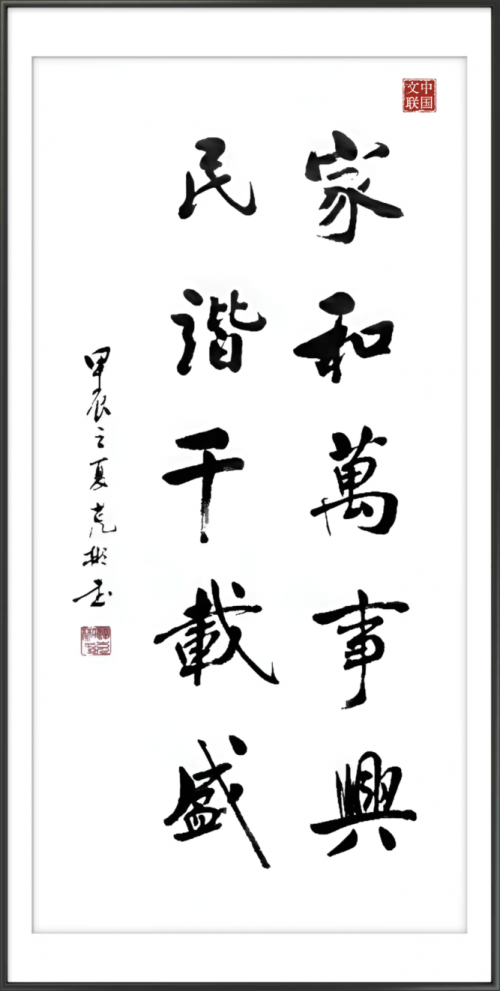 中国文联
家和萬事興
民諧千載盛
甲辰之夏克彬书